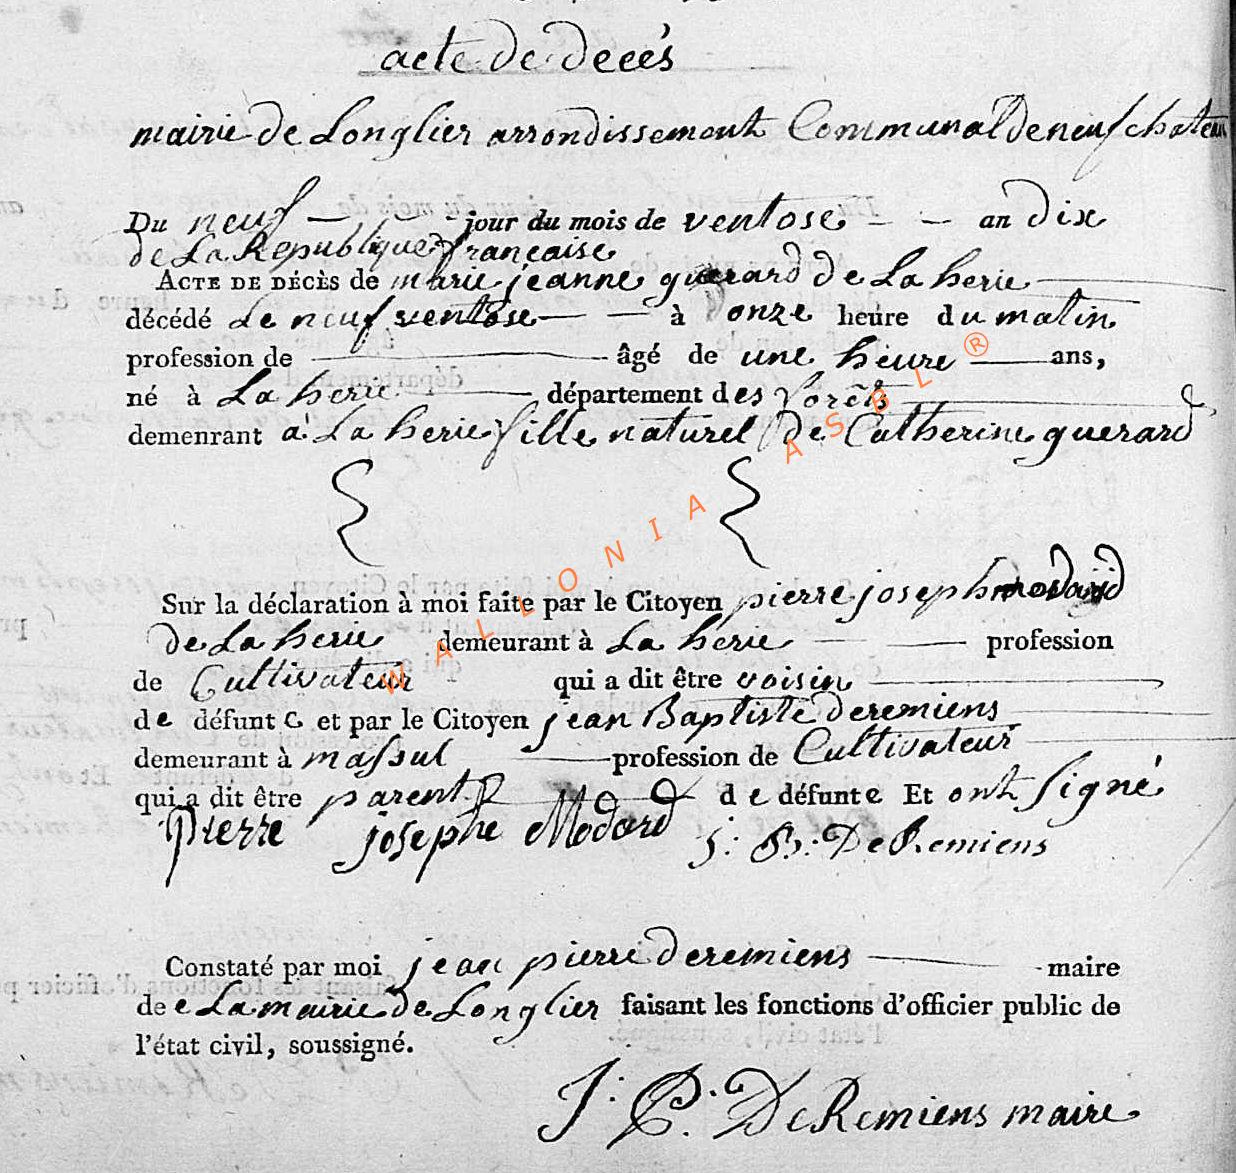 acte de decés
mairie de Longlier arrondissement Communal de neufchateau
Du neuf jour du mois de ventose an dix
de La Republique française
ACTE DE DÉCÈS de marie jeanne guerard de La herie
décédé Le neuf ventose à onze heure du matin
profession de âgé de une heure ans,
né à La herie département des forêts
demeurant à La herie fille naturel de Catherine guerard
Sur la déclaration à moi faite par le Citoyen pierre joseph
de La herie demeurant à La herie profession
de Cultivateur qui a dit être voisin
de défunt e et par le Citoyen jean Baptiste Deremiens
demeurant à massul profession de Cultivateur
qui a dit être parent de défunte Et ont signé
pierre josephe Modard J: B: De Remiens
Constaté par moi jean pierre Deremiens maire
de e La mairie de Longlier faisant les fonctions d'officier public de
l'état civil, soussigné.
J: P: De Remiens maire
WALLONIA ASBL ®